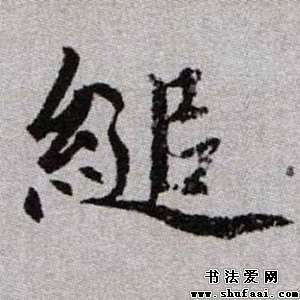 縋
书法爱网
www.shufaai.com